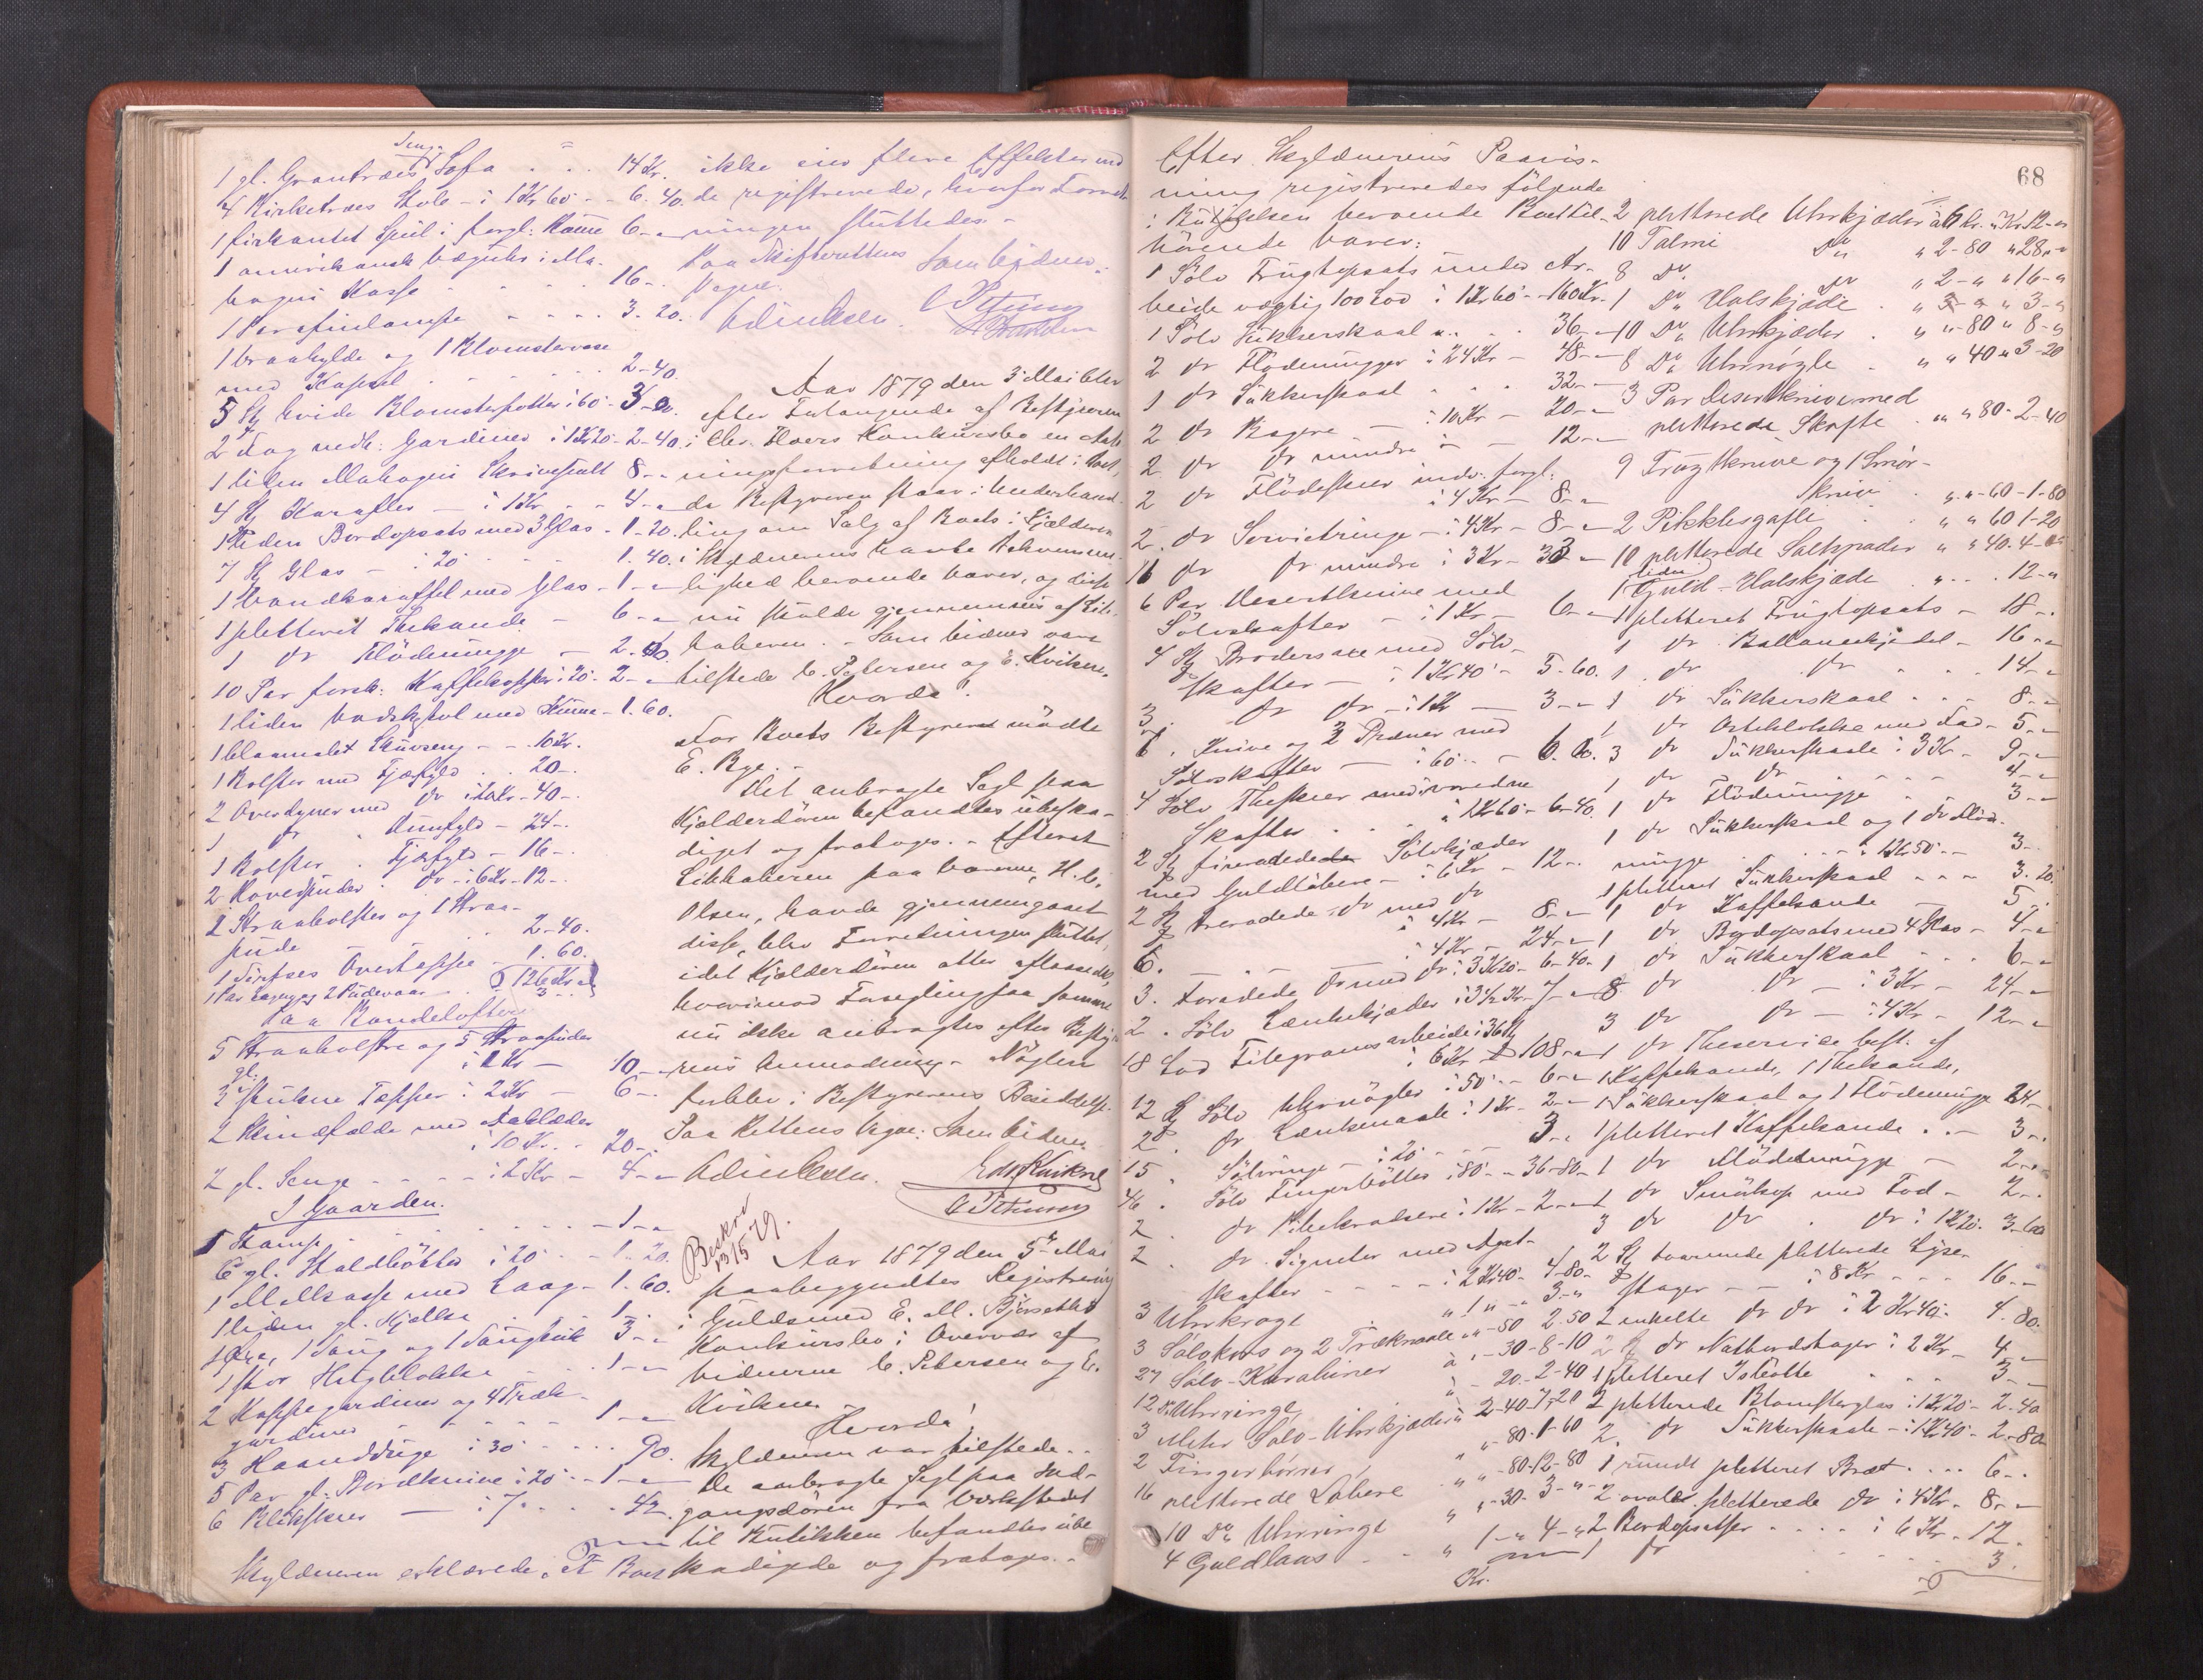 1 gl. Grantræes Senge Sofa . . 14 Kr.
4 Birketræes Stole - à 1 Kr 60 - - 6. 40.
1 firkantet Speil i forgl: Ramme 6 - "
1 amerikansk Væguhr i Ma-
hagni Kasse . . . . 16 - .
1 Parafinlampe . . . . 3. 20.
1 Vraahylde og 1 Blomstervase
med Kapsel . . . . . . 2 - 40.
5 St hvide Blomsterpotter à 60 - 3 - 00.
2 Fag nedh: Gardiner à 1 Kr 20 - 2 - 40.
1 liden Mahogni Skrivepult 8 - "
4 St Karafler - à 1 Kr - - 4 - "
1 liden Bordopsats med 3 Glas - 1 - 20.
7 St Glas - à 20 . . . 1. 40.
1 Vandkaraffel med Glas - 1 - "
1 pletteret Thekande - 6 - "
1 do Flödemugge - 2. 40.
10 Par forsk: Kaffekopper à 20 - 2 - "
1 liden Vadskestol med Kumme - 1. 60.
1 blaamalet Skuvseng - - 10 Kr.
1 Bolster med Fjærfyld . . 20 - .
2 Overdyner med do à 20 Kr - 40 - .
1 do " Duunfyld - 24 - .
1 Bolster . Fjærfyld - 16 - .
2 Hovedpuder . do - à 6 Kr - 12 - .
2 Straabolster og 1 Straa-
pude . . 2 - 40.
1 Overtæppe - 1. 60.
1 Par Lagen og 2 Pudevaar . . 3 - .
126 Kr
Paa Bondeloftet
5 Straabolstre og 5 Straapuder
à 2 Kr - 10 - "
3 gl. Tæpper à 2 Kr - 6 - .
2 Skindfælde med Aaklæder
à 10 Kr. - 20 - .
2 gl. Senge - - - - à 2 Kr - 4 - "
I Gaarden.
1 Stamp . . . . . . . - 1 - "
6 gl. Staldbötter à 20 . . - 1. 20.
1 Melkasse med Laag - 1. 60.
1 liden gl. Kjælke . . . 1 - .
1 Öxe, 1 Sang og 1 3 - "
1 stor . . 1 - "
2 Kappegardiner og 4 Træk-
gardiner - - - - - 1 - "
3 Haandduge à 30 - . . . 90.
5 Par gl. Bordknive à 20 - - 1 - "
6 Blikskeer - à 7 . . . . 42.
Skyldneren erklærede, at Boet
ikke eier flere Effekter end
de registrerede, hvorfor Forret-
ningen sluttedes. -
Paa Skifterettens Vegne. Som Vidner:
C Petersen
Aar 1879 den 3 Mai blev
efter Forlangende af Bestyreren
i Chr. Hoers Konkursbo en
ningsforretning afholdt i Boet,
da Bestyreren staar i Underhand-
ling om Salg af Boets i Kjælderen
i Skyldnerens havte Bekvemme-
lighed beroende Varer, og disse
nu skulde gjennemsees af Lik-
haberen. - Som Vidner vare
tilstede C. Petersen og E. Kvikne.
Hvorda:
For Boets Bestyrer mödte
E. Bye. -
Det anbragte Segl paa
Kjælderdören befandtes ubeska-
diget og fratoges. - Efterat
Likhaberen paa Varerne, H. C.
Olsen, havde gjennemgaaet
disse, blev Forretningen sluttet,
idet Kjælderdören atter aflaasedes,
hvorimod Forsegling paa samme
nu ikke anbragtes efter Bestyre-
rens Anmodning. Nöglen
forblev i Bestyrerens Besiddelse.
Paa Rettens Vegne: Som Vidner
Kvikne
C Petersen
Beskrev
13/5 79.
Aar 1879 den 5te Mai
paabegyndtes Registrering
i Guldsmed E. M. Bjørseths
Konkursbo i Overvær af
Vidnerne C. Petersen og E.
Kvikne.
Hvorda:
Skyldneren var tilstede. -
De anbragte Segl paa Ind-
gangsdören fra Værkstedet
til Butikken befandtes ube-
skadigede og fratoges. -
68
Efter Skyldnerens Paavis-
ning registreredes fölgende
i Butikken beroende Boet til-
hörende Varer:
1 Sölv Frugtopsats under Ar-
beide vægtig 100 Lod à 1 Kr 60 - 160 Kr.
1 Sölv Sukkerskaal . . . 36 - "
2 do Flödemugger à 24 Kr - 48 - "
1 do Sukkerskaal . . . 32 - "
2 do Bægere - à 10 Kr - 20 - "
2 do do mindre à - 12 - "
2 do Flödeskeer indv. forgl:
à 4 Kr - 8 - "
2 do Servietringe - à 4 Kr - 8 - "
11 do do mindre à 3 Kr - 33 - "
6 Par Dessertknive med
Sölvskafter - à 1 Kr - 6 - "
4 St Brodersaxe med Sölv-
skafter - à 1 Kr 40 - 5. 60.
3 do do - à 1 Kr - 3 - "
6 . Knive og 2 Prener med
Sölvskafter - à 60 - - 6. 00.
4 Sölv Theskeer med vredne
Skafter . . . à 1 Kr 60 - 6 - 40.
2 St fireradede Sölvkjæder
med Guldlöbere - à 6 Kr - 12 - .
2 St treradede do med do
à 4 Kr - 8 - "
6. - - - - à 4 Kr - 24 - "
3. toradede do med do à 3 Kr 20 - 6 - 40.
2 . Sölv Lænkekjæder à 3 1/2 Kr - 7 - "
18 Lod Filegransarbeide i 36 St
à 6 Kr 108 - "
12 St Sölv Uhrnögler à 50 - - 6 - "
2 do Lænkenaale à 1 Kr - 2 - "
15 . Sölvringe - à 20 - - - 3 - "
46 . Sölv Fingerbölter à 80 - - 36 - 80 -
2 . do Piberensere à 1 Kr - 2 - "
2 . do Signeter med Agat-
skafter - - - - à 2 Kr 40 - 4 - 80 -
3 Uhrkroge " 1 " - 3 - "
3 Sölvkors og 2 Træknaale " - 50 2. 50
27 Sölv-Karabiner à " - 30 - 8 - 10
12 Uhrringe " - 20 - 2 - 40
3 Meter Sölv-Uhrkjæder à 2 - 40 - 7 - 20
2 Fingerbörrer " - 80 - 1 - 60
16 pletterede Löbere " " - 80 - 12 - 80
10 Do Uhrringe " " - 30 - 3 - "
4 Guldlaas . . . " 1 - " 4 - "
Kr.
2 pletterede Uhrkjæder à 6 Kr. " Kr 12 - "
10 Talmi Do " 2 - 80 " 28 - "
8 Do do " 2 - " " 16 - "
1 Do Halskjæde . " 3 - " " 3 - "
10 Do Uhrkjæder . " " - 80 " 8 - "
8 Do Uhrnögle . " " 40 " 3 - 20
3 Par Desertknive med
pletterede Skafte . " " 80 - 2 - 40
9 Frugtknive og 1 Smör-
kniv . " " - 60 - 1 - 80
2 Pikklesgafle . . " " 60 1 - 20
10 pletterede Saltspader " " 40. 4 - 00
1 liden Guld-Halskjæde . " . . . 12 - "
1 pletteret Frugtopsats - 18 - .
1 do Ballancekjedel - 16 - "
1 do do . . . . 14 - "
1 do Sukkerskaal . . . 8 - "
1 do Osteklokke med Fad - 5 - "
3 do Sukkerskaale à 3 Kr - 9 - "
1 do do . . . . 4 - "
1 do Flödemugge . . . 3 - "
1 do Sukkerskaal og 1 do Flöde-
mugge . . . . à 1 Kr 50 - - 3 - .
1 pletteret Sukkerskaal . . . 3. 20.
1 do Kaffekande - 5 - .
1 do Bordopsats med 4 Glas - 4 - "
1 do Sukkerskaal . . . 6 - "
8 do do - à 3 Kr - 24 - "
3 do do - à 4 Kr - 12 - "
1 do Theservice best. af
1 Kaffekande, 1 Thekande,
1 Sukkerskaal og 1 Flödemugge 24 -
1 pletteret Kaffekande . . - 3 - .
1 do Flödemugge - 2 - .
1 do Smörkop med Fad - 2 - .
3 do do . do à 1 Kr 20. 3 - 60
2 St toarmede pletterede Lyse-
stager - - à 8 Kr - - - 16 - -
2 enkelte do do à 2 Kr 40 - 4. 80.
2 St do Natbordstager à 2 Kr - 4 - "
1 pletteret Isbötte . . . . 3 - "
2 pletterede Blomsterglas à 1 Kr 20 - 2. 40
2. do Sukkerskaale - à 1 Kr 40 - 2 - 80
1 rundt pletteret Bræt . . . . 6 - .
2 ovale pletterede do à 4 Kr - 8 - "
2 Bordopsatser . . . . à 6 Kr - 12.
1 do . . . . . 3.